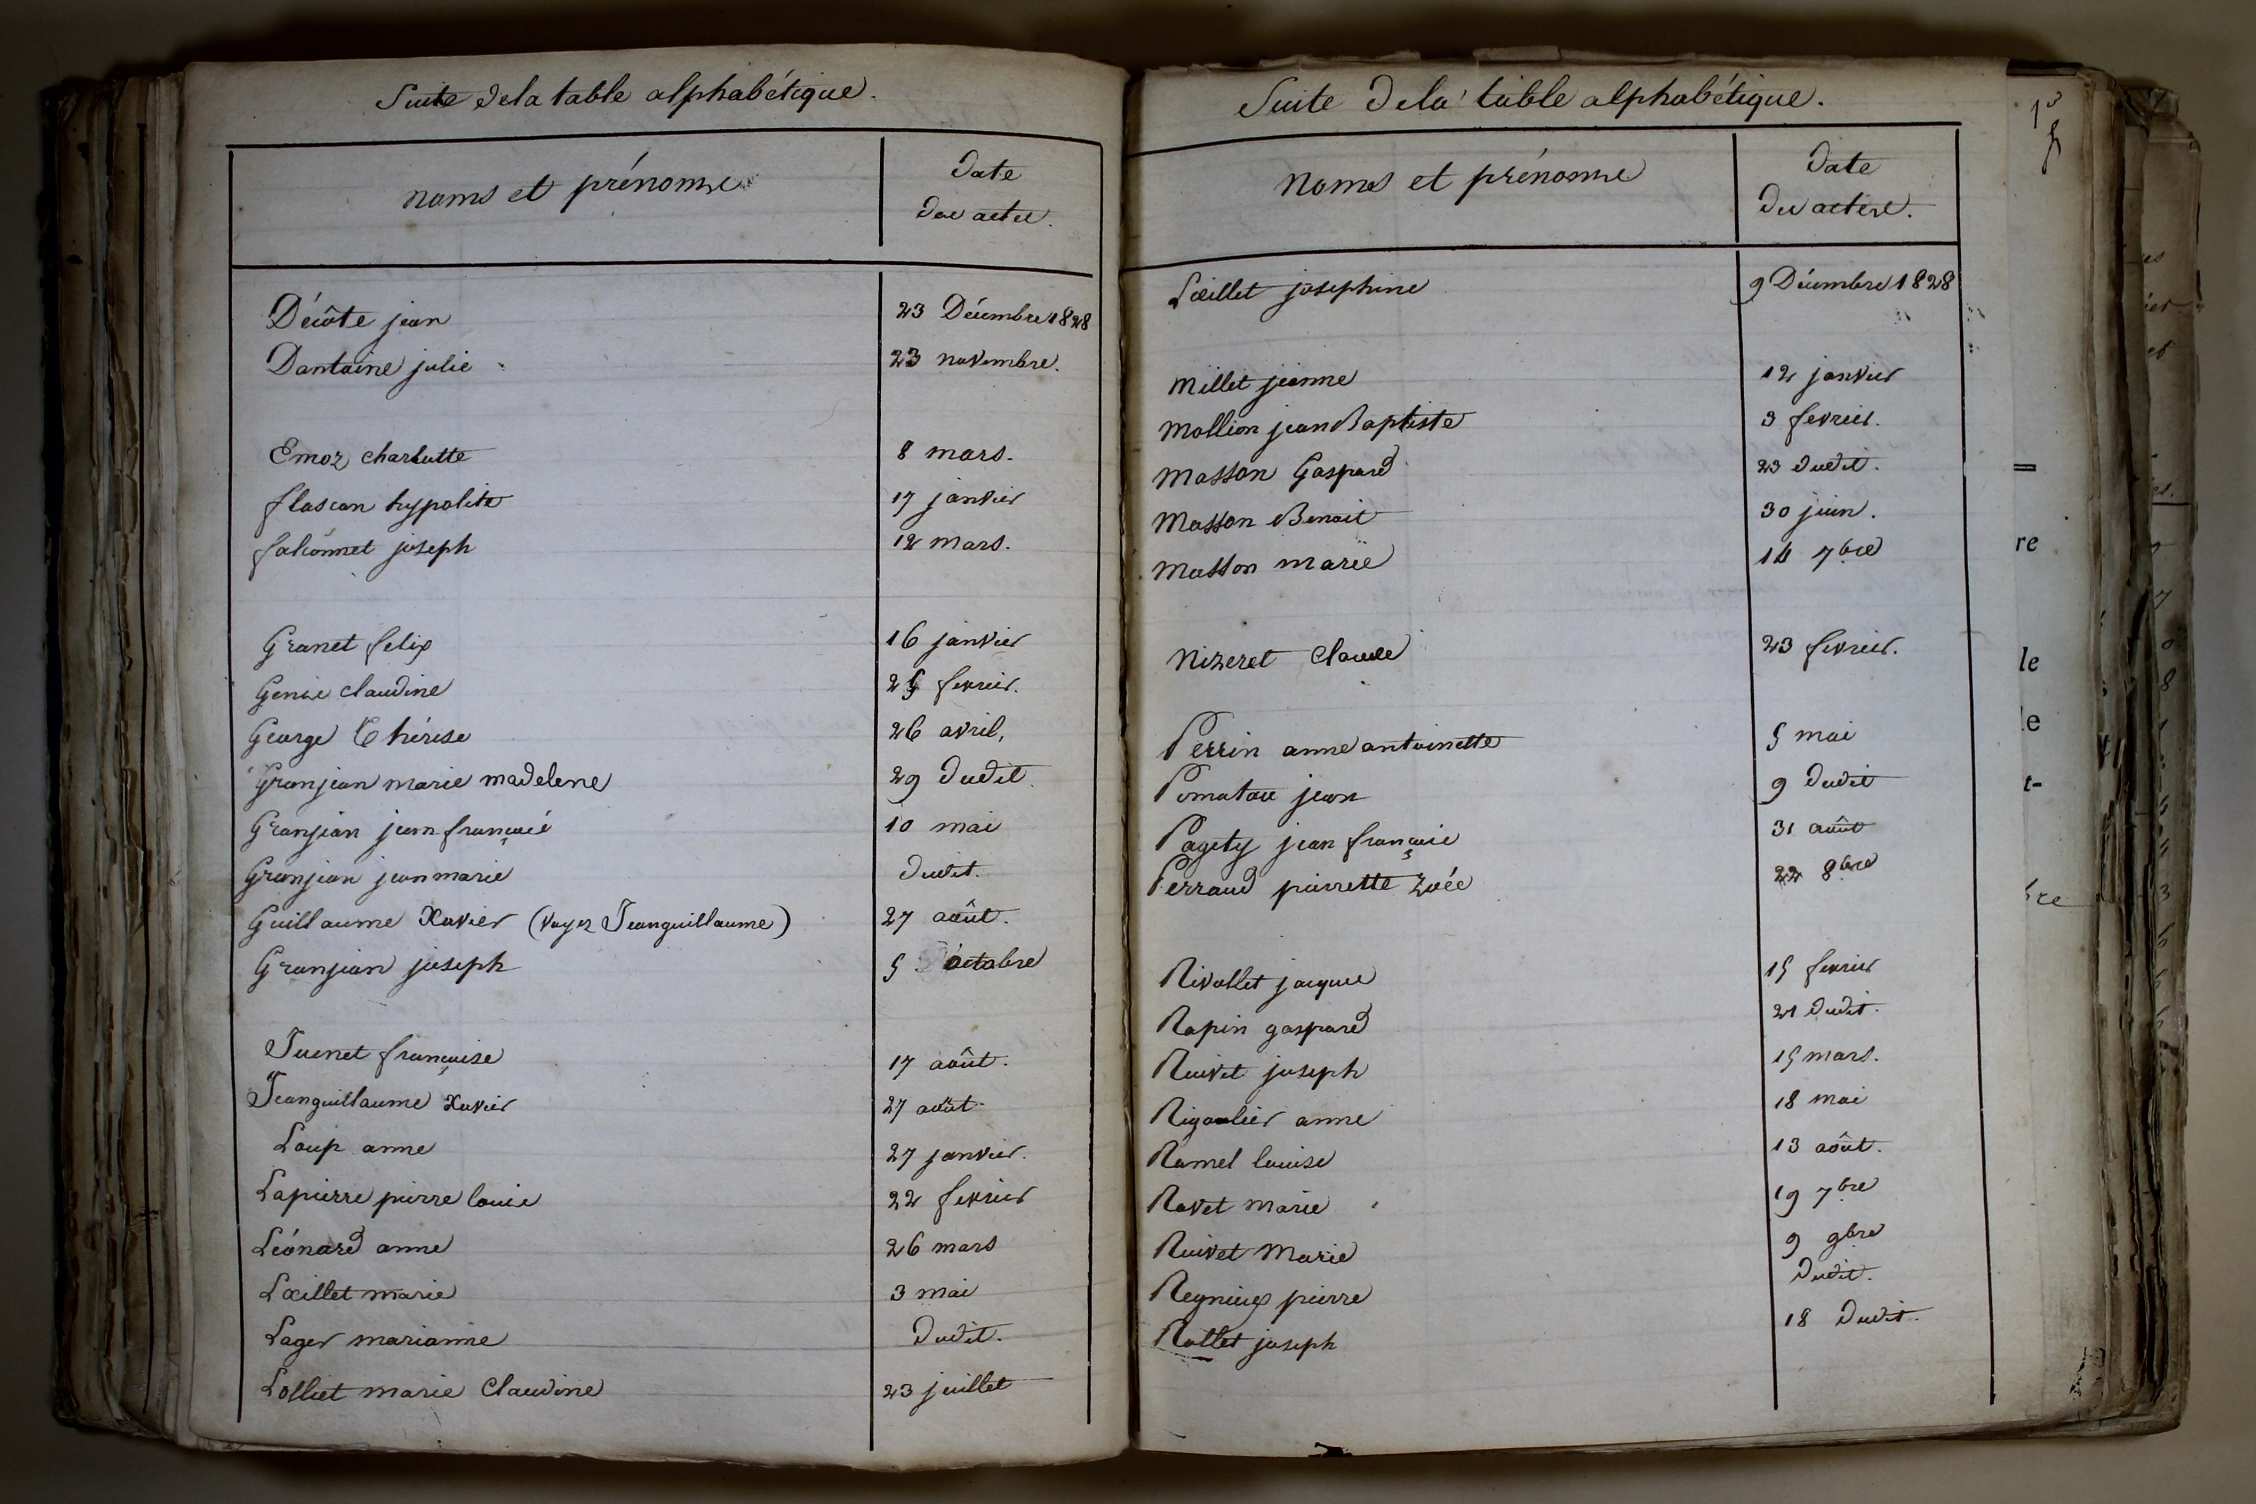 Suite de la table alphabétique.
noms et prénoms
Date
des actes.
Décôte jean 23 Décembre 1828
Dantoine julie 23 novembre.
Emoz charlotte 8 mars.
flascon hypolite 17 janvier
falconnet joseph 12 mars.
Granet felix 16 janvier
Genie claudine 25 fevrier.
George Thérèse 26 avril,
Granjean marie madelene 29 dudit.
Granjean jean françois 10 mai
Granjean jean marie dudit.
Guillaume Xavier (voyez Jeanguillaume) 27 août.
Granjean joseph 5 octobre
Juenet françoise 17 août.
Jeanguillaume Xavier 27 août.
Loup anne 27 janvier.
Lapierre pierre louis 22 fevrier
Léonard anne 26 mars
Lœillet marie 3 mai
Lager marianne dudit.
Lolliet marie Claudine 23 juillet
Suite de la table alphabétique.
Noms et prénoms
Date
des actes.
Lœillet josephine 9 Décembre 1828
Millet jeanne 12 janvier
Mollion jean Baptiste 3 fevrier.
Masson Gaspard 23 dudit.
Masson Benoit 30 juin.
Masson marie 14 7bre
Nizeret Claude 23 fevrier.
Perrin anne antoinette 5 mai
Pomatau jean 9 dudit
Pagety jean françois 31 août
Perraud pierrette Zoée 22 8bre
Rivollet jacques 15 fevrier
Rapin gaspard 21 dudit.
Ruivet joseph 15 mars.
Rigoulier anne 18 mai
Ramel louise 13 août.
Ravet marie 19 7bre
Ruivet Marie 9 9bre
Reynieux pierre dudit.
Rollet joseph 18 dudit.
re
le
le
t-